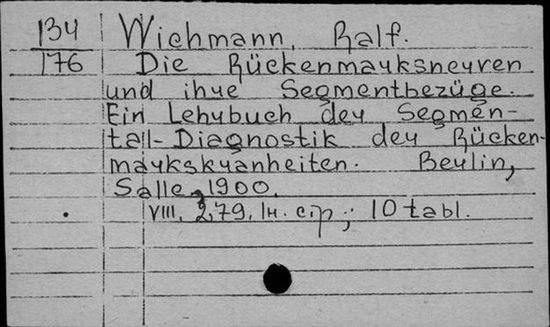 134 Wichmann, Ralf.
176 Die Rückenmarksnerven
und ihre Segmentbezüge.
Ein Lehrbuch der Segmen-
tall-Diagnostik der Rücken-
markskranheiten. Berlin,
Salle, 1900.
VIII, 279, 1н. стр.; 10 tabl.